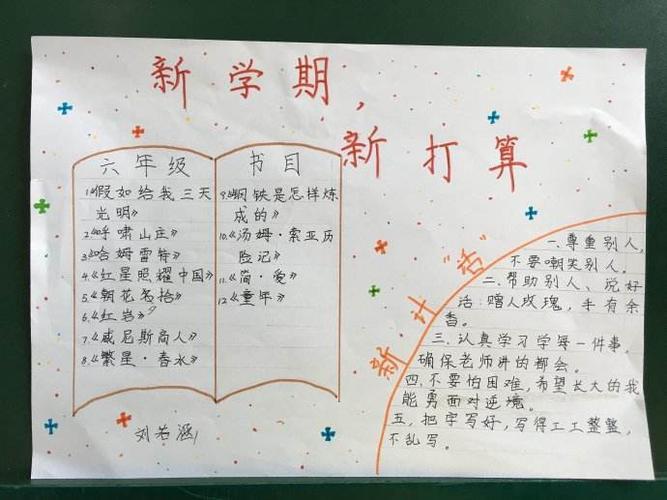 新学期，
新打算
六年级
1.《假如给我三天
光明》
2.《呼啸山庄》
3.《哈姆雷特》
4.《红星照耀中国》
5.《朝花夕拾》
6.《红岩》
7.《威尼斯商人》
8.《繁星·春水》
书目
9.《钢铁是怎样炼
成的》
10.《汤姆·索亚历
险记》
11.《简·爱》
12.《童年》
刘若涵
新计"话"
一、尊重别人，
不要嘲笑别人。
二、帮助别人、说好
话：赠人玫瑰，手有余
香。
三、认真学习学每一件事，
确保老师讲的都会。
四、不要怕困难，希望长大的我
能勇面对逆境。
五、把字写好，写得工工整整，
不乱写。